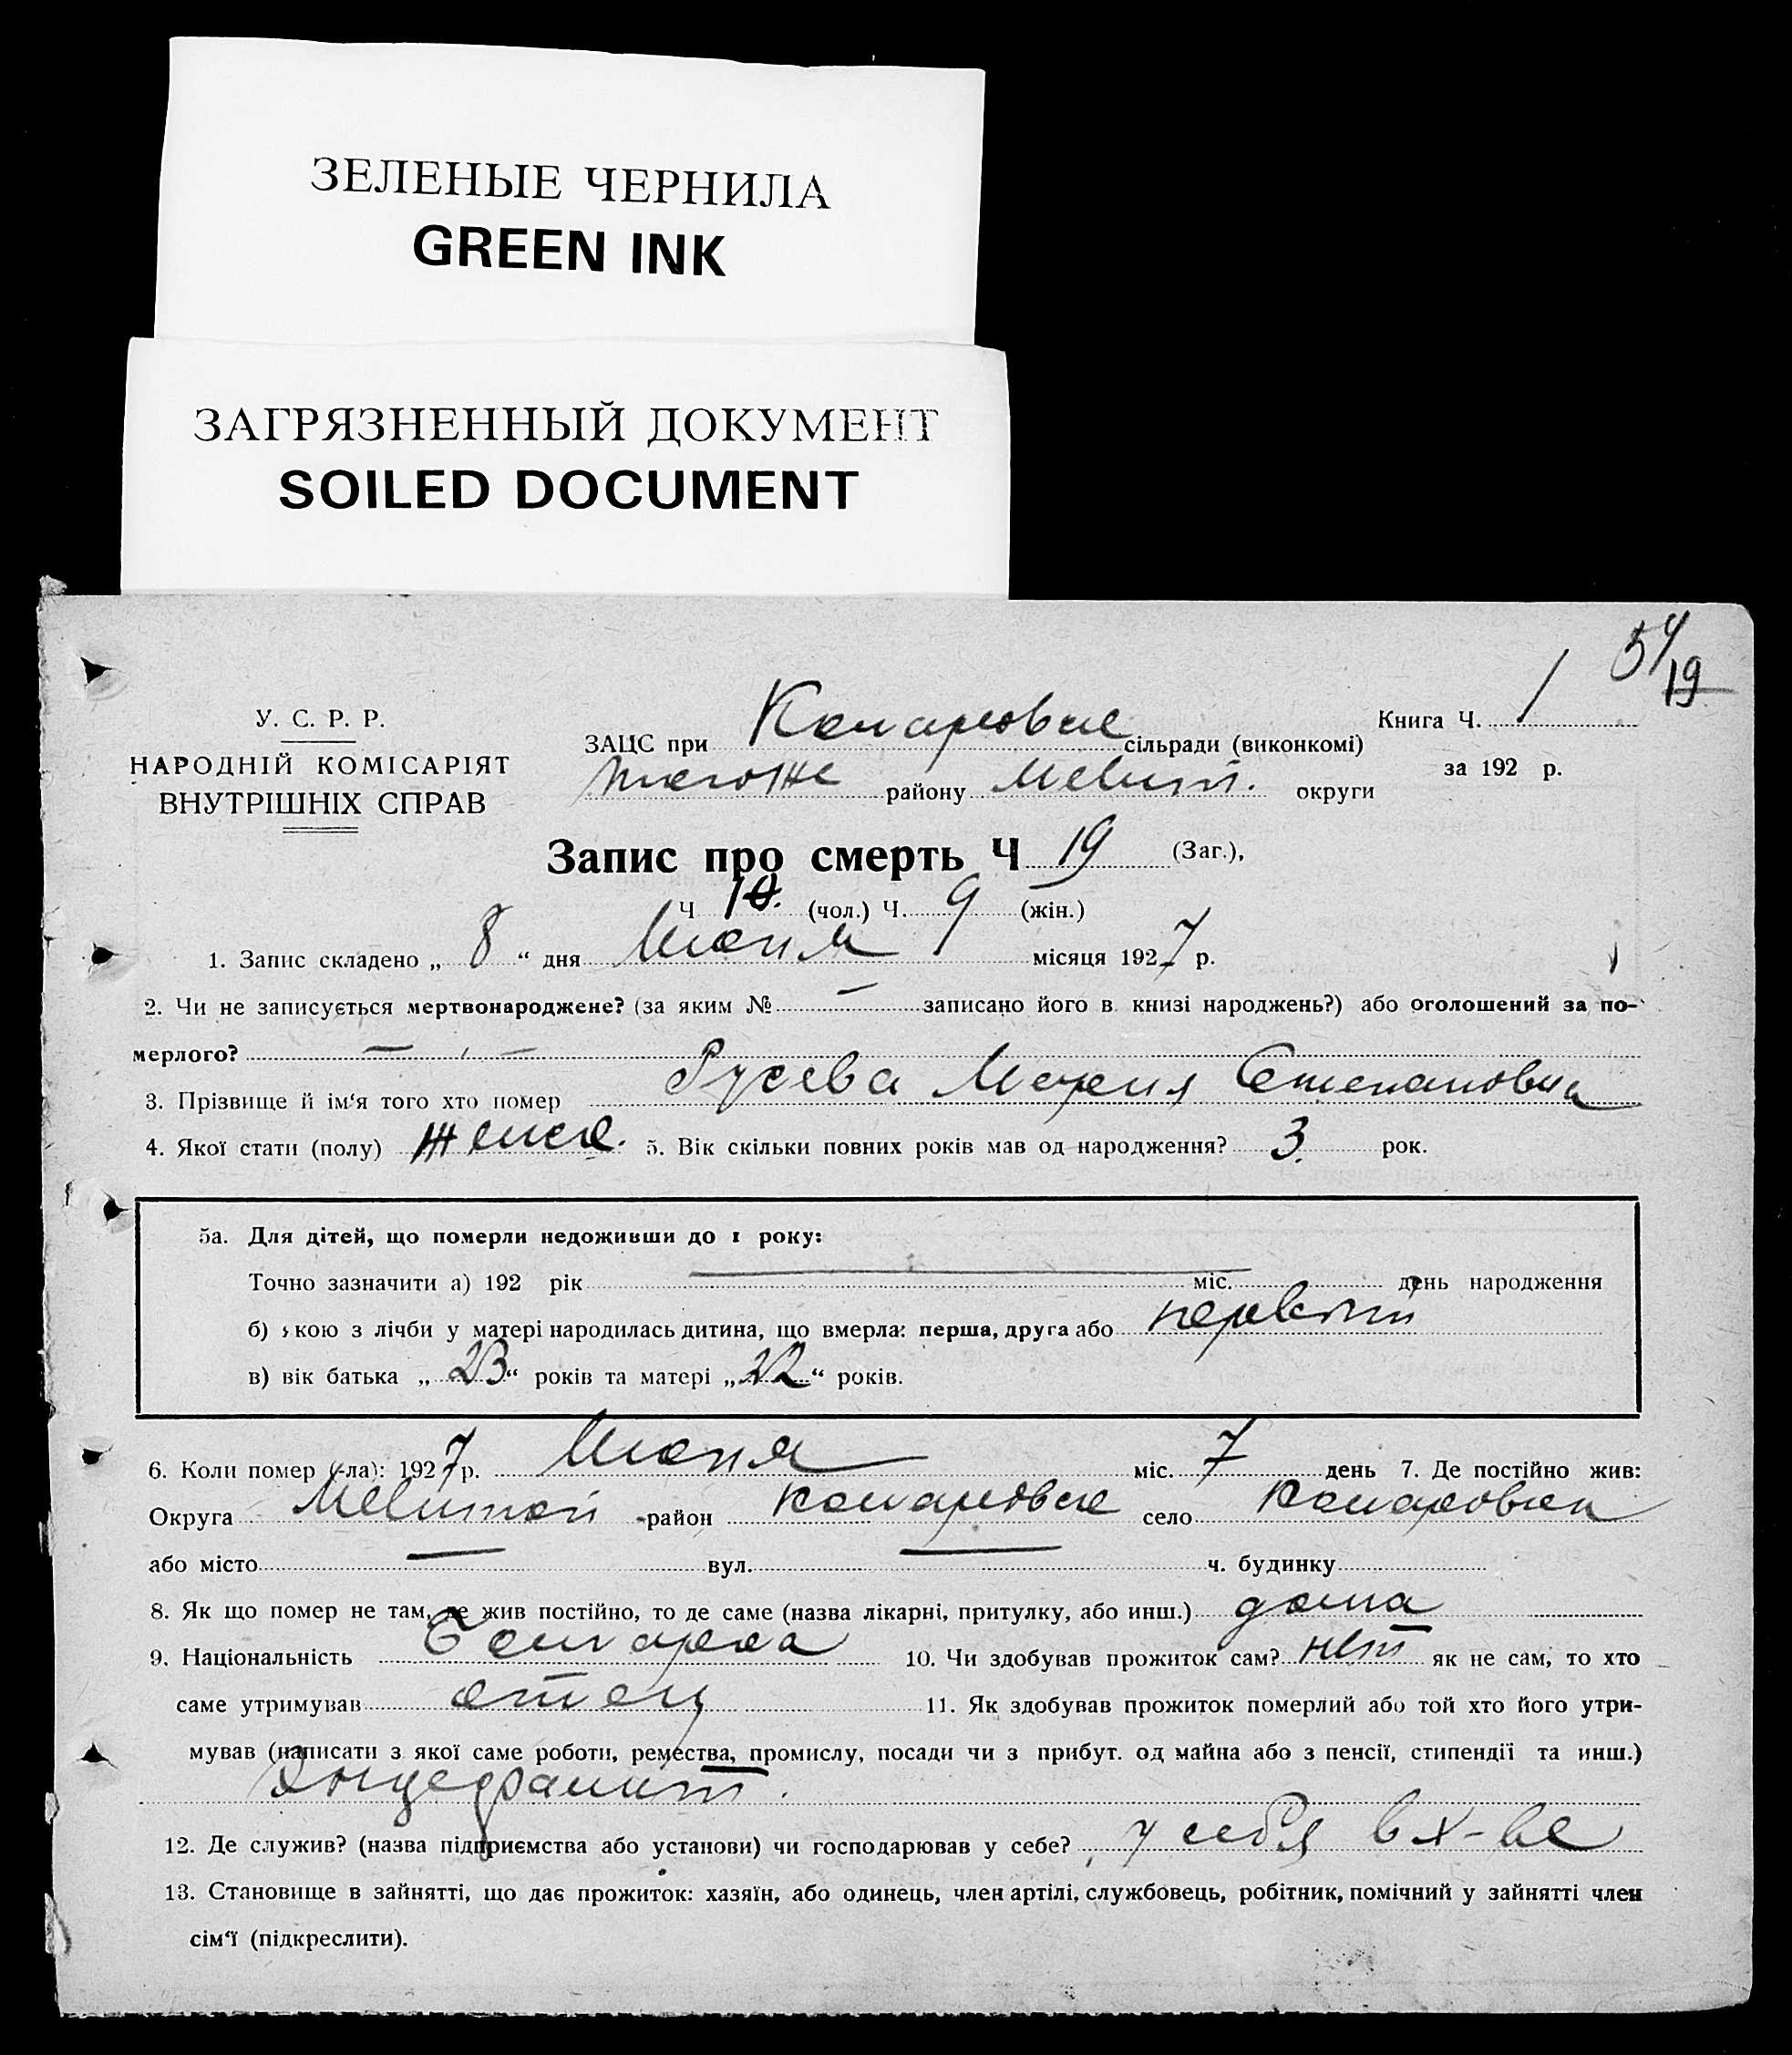 ЗЕЛЕНЫЕ ЧЕРНИЛА
GREEN INK
ЗАГРЯЗНЕННЫЙ ДОКУМЕНТ
SOILED DOCUMENT
54/19
У. С. Р. Р.
НАРОДНІЙ КОМІСАРІЯТ
ВНУТРІШНІХ СПРАВ
ЗАЦС при сільради (виконкомі)
тогоже району Мелит. округи
Книга Ч. 1
за 192 р.
Запис про смерть Ч 19 (Заг.),
Ч 10. (чол.) Ч. 9 (жін.)
1. Запис складено „ 8 “ дня місяця 1927 р.
2. Чи не записується мертвонароджене? (за яким № — записано його в книзі народжень?) або оголошений за по-
мерлого? — —
3. Прізвище й ім'я того хто помер Русева Мария Степановна
4. Якої стати (полу) женск. 5. Вік скільки повних років мав од народження? 3 рок.
5а. Для дітей, що померли недоживши до 1 року:
Точно зазначити а) 192 рік — міс. день народження
б) якою з лічби у матері народилась дитина, що вмерла: перша, друга або
в) вік батька „ 23 “ років та матері „ 22 “ років.
6. Коли помер (-ла): 1927 р. міс. 7 день 7. Де постійно жив:
Округа район село
або місто — вул. — ч. будинку
8. Як що помер не там, де жив постійно, то де саме (назва лікарні, притулку, або инш.) дома
9. Національність Болгарка 10. Чи здобував прожиток сам? нет як не сам, то хто
саме утримував отец 11. Як здобував прожиток померлий або той хто його утри-
мував (написати з якої саме роботи, ремества, промислу, посади чи з прибут. од майна або з пенсії, стипендії та инш.)
12. Де служив? (назва підприємства або установи) чи господарював у себе? у себя в х-ве
13. Становище в зайнятті, що дає прожиток: хазяїн, або одинець, член артілі, службовець, робітник, помічний у зайнятті член
сім'ї (підкреслити).